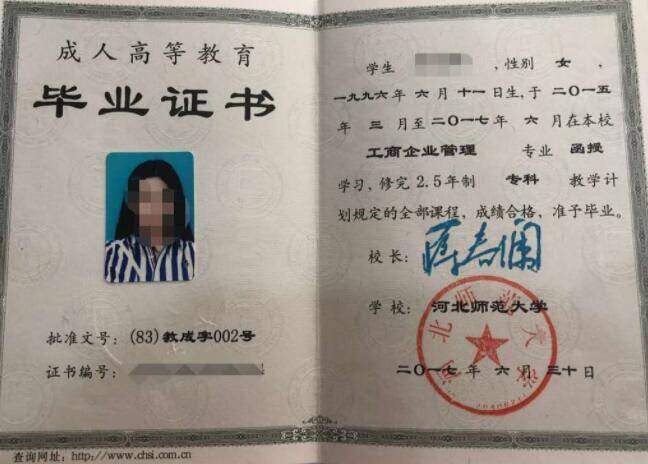 成人高等教育
毕业证书
批准文号：(83)教成字002号
证书编号：
查询网址：http://www.chsi.com.cn
学生 ，性别 女 ，
一九九六年 六月 十一日生，于 二〇一五
年 三 月至二〇一七年 六月在本校
工商企业管理 专业 函授
学习，修完 2.5年制 专科 教学计
划规定的全部课程，成绩合格，准予毕业。
校长：
学校：河北师范大学
河北师范大学
二〇一七年 六月 三十日